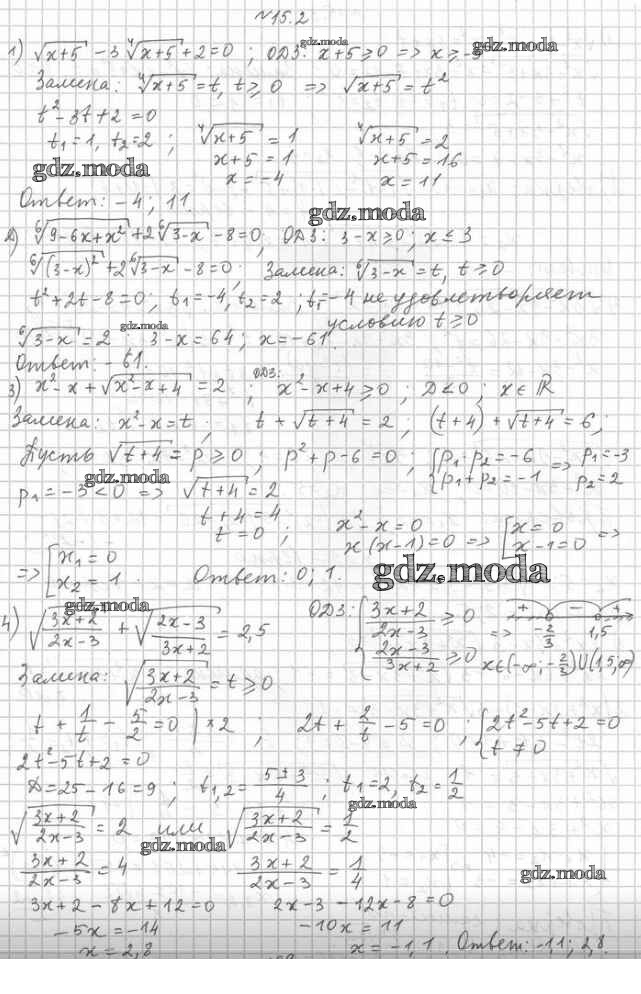 №15.2
1) √x+5 - 3 ⁴√x+5 + 2 = 0 ; ОДЗ: x+5 ≥ 0 => x ≥ -5
gdz.moda
gdz.moda
Замена: ⁴√x+5 = t, t ≥ 0 => √x+5 = t²
t² - 3t + 2 = 0
t₁ = 1, t₂ = 2 ; ⁴√x+5 = 1 ⁴√x+5 = 2
x+5 = 1 x+5 = 16
gdz.moda
x = -4 x = 11
Ответ: -4; 11.
gdz.moda
2) ⁶√9-6x+x² + 2 ⁶√3-x - 8 = 0; ОДЗ: 3-x ≥ 0; x ≤ 3
⁶√(3-x)² + 2 ⁶√3-x - 8 = 0; Замена: ⁶√3-x = t, t ≥ 0
t² + 2t - 8 = 0; t₁ = -4, t₂ = 2 ; t₁ = -4 не удовлетворяет
gdz.moda
условию t ≥ 0
⁶√3-x = 2 ; 3-x = 64; x = -61
Ответ: -61.
3) x² - x + √x²-x+4 = 2 ; ОДЗ: x² - x + 4 ≥ 0 ; D < 0 ; x ∈ R
Замена: x² - x = t ; t + √t+4 = 2 ; (t+4) + √t+4 = 6;
Пусть √t+4 = p ≥ 0 ; p² + p - 6 = 0 ; { p₁·p₂ = -6 p₁+p₂ = -1 => p₁ = -3 p₂ = 2
gdz.moda
p₁ = -3 < 0 => √t+4 = 2
t+4 = 4
t = 0 ; x² - x = 0
x(x-1) = 0 => [ x = 0 x-1 = 0 =>
=> [ x₁ = 0 x₂ = 1 . Ответ: 0; 1.
gdz.moda
gdz.moda
4) √(3x+2)/(2x-3) + √(2x-3)/(3x+2) = 2,5 ОДЗ: { (3x+2)/(2x-3) ≥ 0 (2x-3)/(3x+2) ≥ 0 => + - + -2/3 1,5
x∈(-∞;-2/3)∪(1,5;∞)
Замена: √(3x+2)/(2x-3) = t ≥ 0
t + 1/t - 5/2 = 0 | ×2 ; 2t + 2/t - 5 = 0 ; { 2t² - 5t + 2 = 0 t ≠ 0
2t² - 5t + 2 = 0
D = 25 - 16 = 9 ; t₁,₂ = (5±3)/4 ; t₁ = 2, t₂ = 1/2
gdz.moda
√(3x+2)/(2x-3) = 2 или √(3x+2)/(2x-3) = 1/2
gdz.moda
(3x+2)/(2x-3) = 4 (3x+2)/(2x-3) = 1/4
gdz.moda
3x+2 - 8x + 12 = 0 2x-3 - 12x - 8 = 0
-5x = -14 -10x = 11
x = 2,8 x = -1,1 . Ответ: -1,1; 2,8.